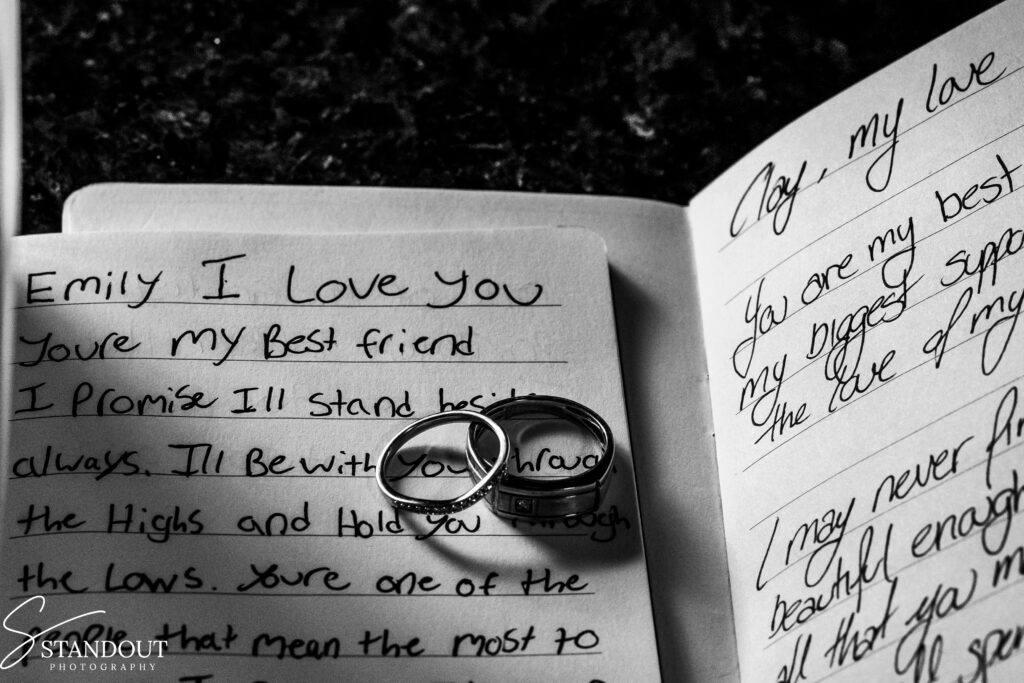 Emily I Love you
youre my Best friend
I Promise Ill stand
always. Ill Be with you through
the Highs and Hold you through
the Lows. Youre one of the
people that mean the most to
Clay, my love
You are my best
my biggest
the love of my
I may never
beautiful enough
all that you
I'll
STANDOUT
PHOTOGRAPHY